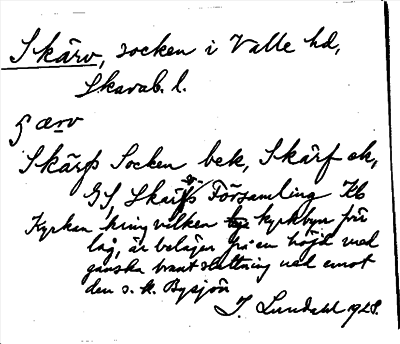 Skärv, socken i Valle hd,
Skarab. l.
§ ærv
Skärfs Socken bek, Skärf ek,
GS, Skärfs Församling Kb
Kyrkan kring vilken kyrkbyn
låg, är belägen på en höjd med
ganska brant sluttning ned emot
den s. k. Bysjön
J. Lundahl 1928.